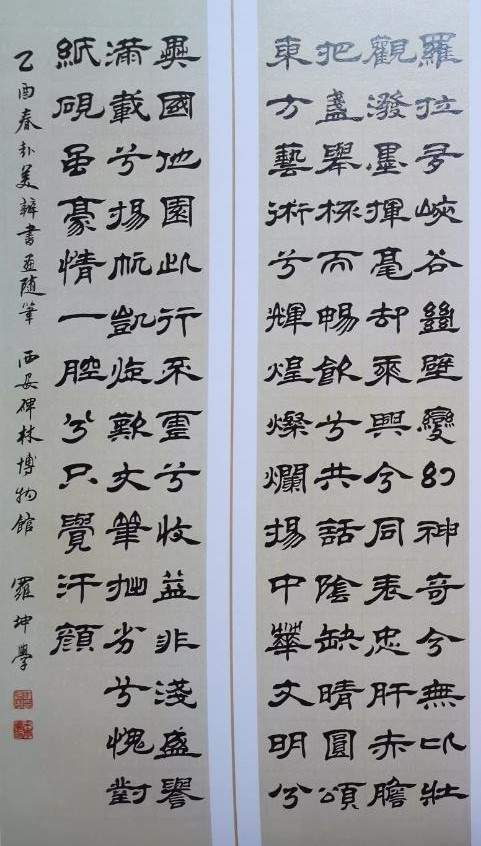 羅拉多峽谷絕壁變幻神奇兮無以壯
觀潑墨揮毫却乘興兮同表忠肝赤膽
把盞舉杯而暢飲兮共話陰缺晴圓頌
東方藝術兮輝煌燦爛揚中華文明兮
異國他園此行不虛兮收益非淺盛譽
滿載兮揚帆凱旋歎文筆拙劣兮愧對
紙硯虽豪情一腔兮只覺汗顏
乙酉春赴美辦書画随筆 西安碑林博物館 羅坤學